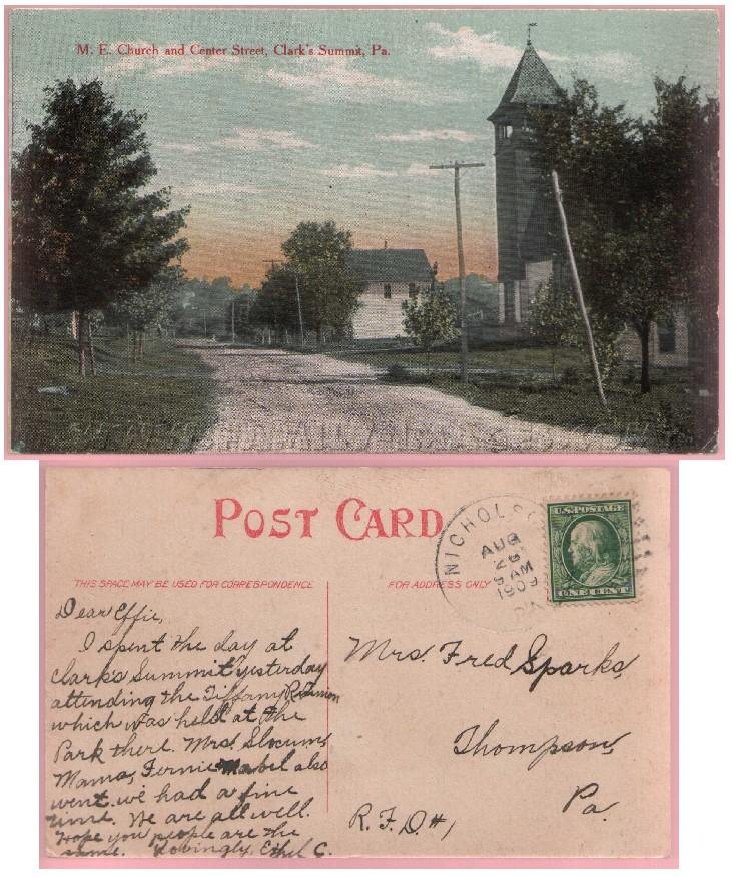 M. E. Church and Center Street, Clark's Summit, Pa.
POST CARD
THIS SPACE MAY BE USED FOR CORRESPONDENCE
FOR ADDRESS ONLY
NICHOL
AUG
26
9 AM
1909
U.S. POSTAGE
ONE CENT
Dear Effie,
I spent the day at
Clarks Summit yesterday
attending the Tiffany Reunion
which was held at the
Park there. Mrs. Slocum,
Mama, Fernie Mabel also
went. we had a fine
time. We are all well.
Hope you people are the
same. Lovingly, Ethel C.
Mrs. Fred Sparks,
Thompson,
Pa.
R.F.D #1